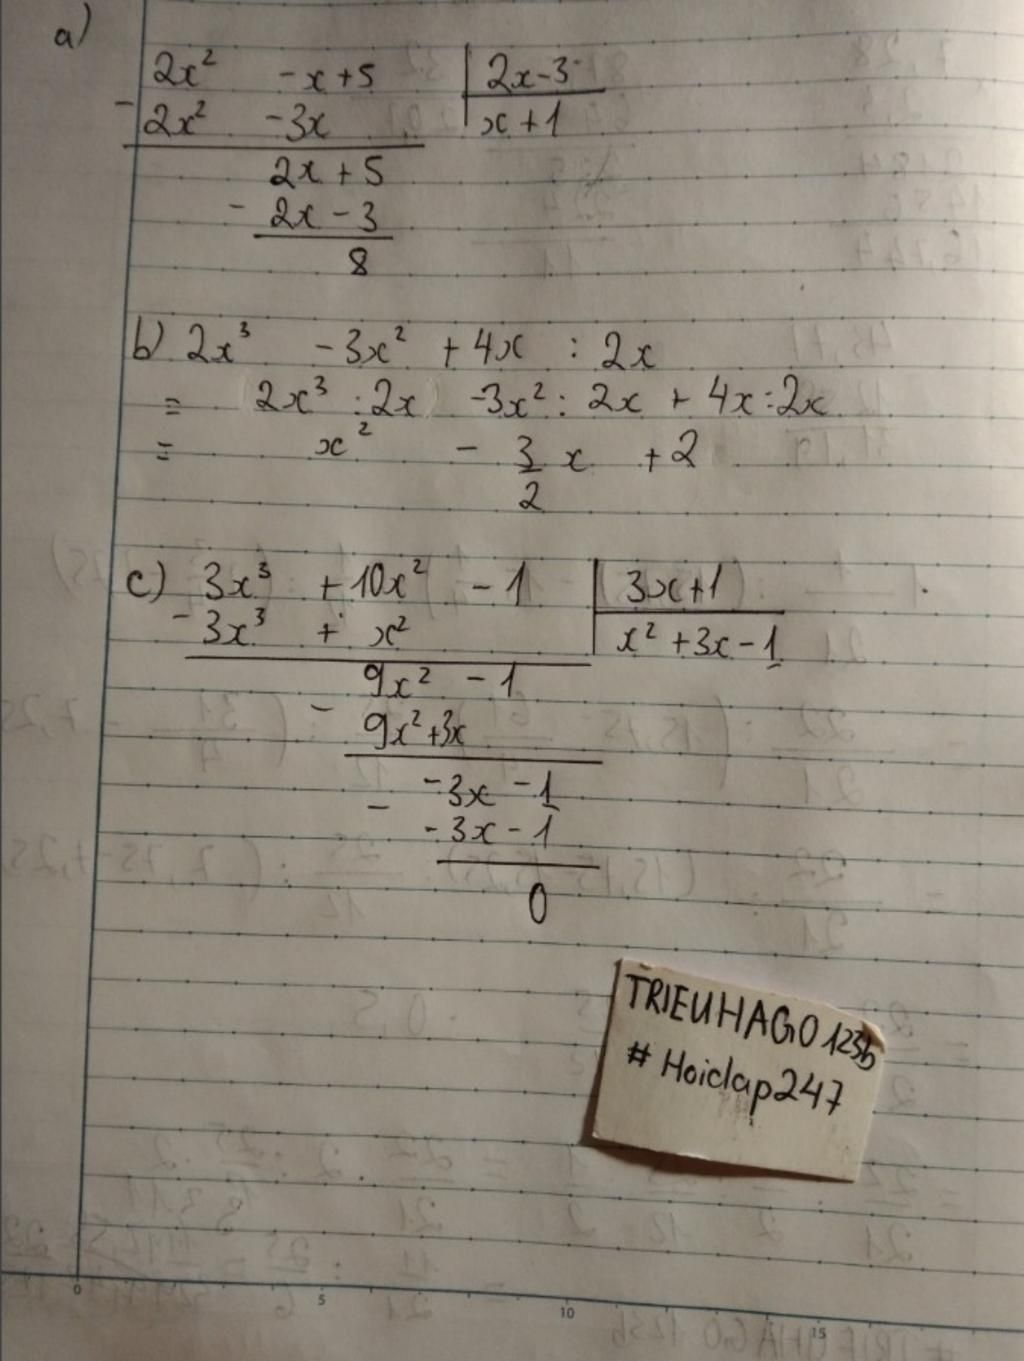 a)
2x² - x + 5 | 2x - 3
- 2x² - 3x | x + 1
2x + 5
- 2x - 3
8
b) 2x³ - 3x² + 4x : 2x
= 2x³ : 2x - 3x² : 2x + 4x : 2x
= x² - 3/2 x + 2
c) 3x³ + 10x² - 1 | 3x + 1
- 3x³ + x² | x² + 3x - 1
9x² - 1
- 9x² + 3x
-3x - 1
- -3x - 1
0
TRIEUHAGO123b
# Hoidap247
0 5 10 15